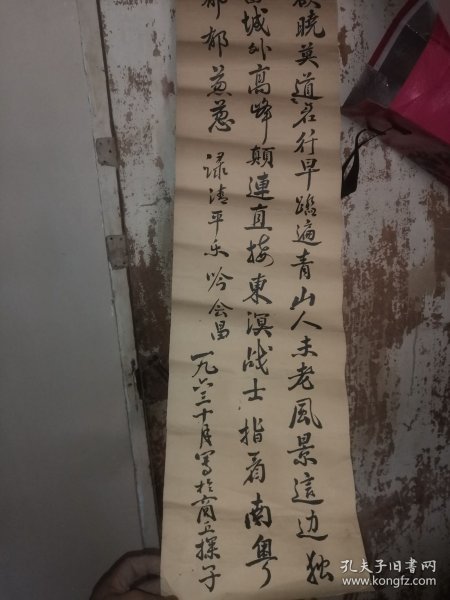 欲晓莫道君行早踏遍青山人未老風景這边独
昌城外高峰顛連直接東溟战士指看南粤
郁郁葱葱 录清平乐吟会昌
一九六三十月写於商丘探子
孔夫子旧书网
www.kongfz.com